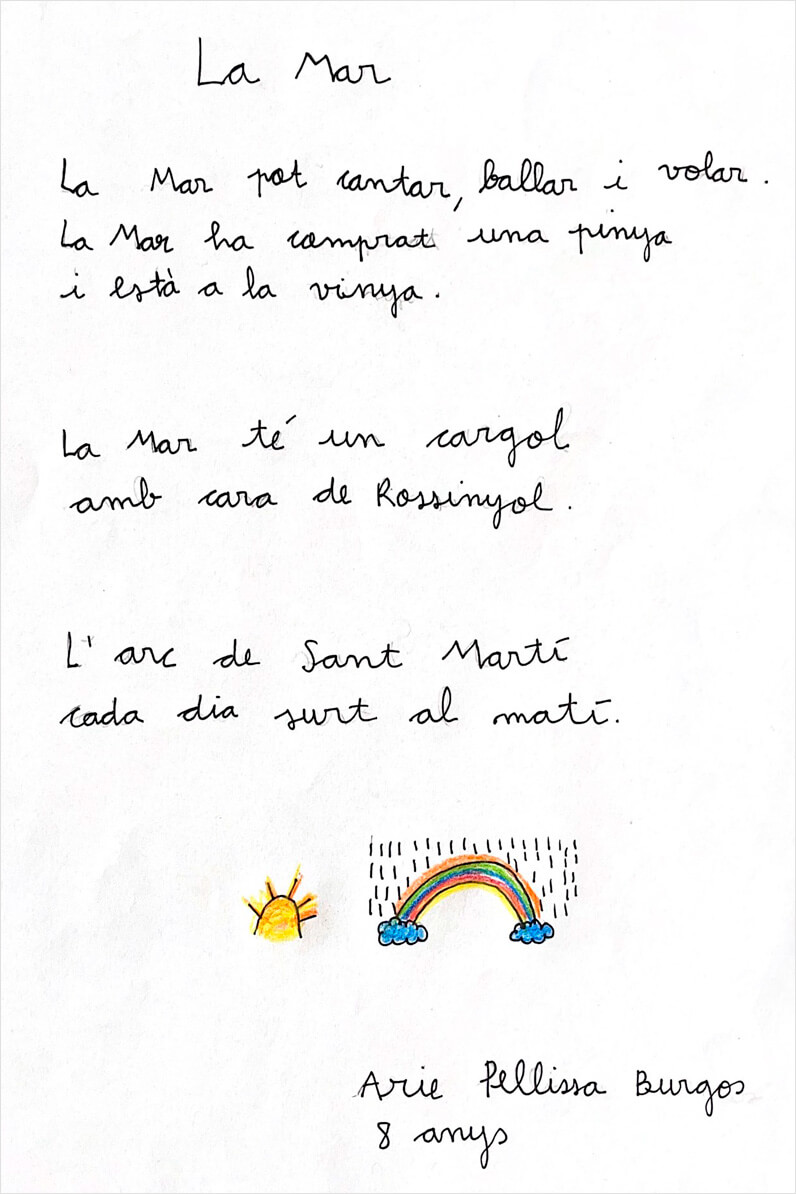 La Mar
La Mar pot cantar, ballar i volar.
La Mar ha comprat una pinya
i està a la vinya.
La Mar té un cargol
amb cara de Rossinyol.
L'arc de Sant Martí
cada dia surt al matí.
Arie Pellissa Burgos
8 anys